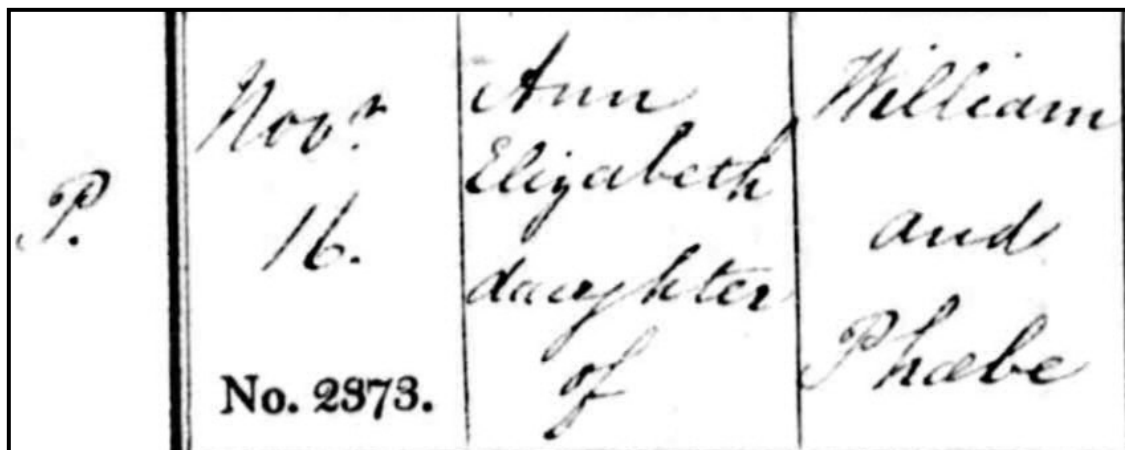 P.
Novr.
16.
No. 2373.
Ann
Elizabeth
daughter
of
William
and
Phœbe